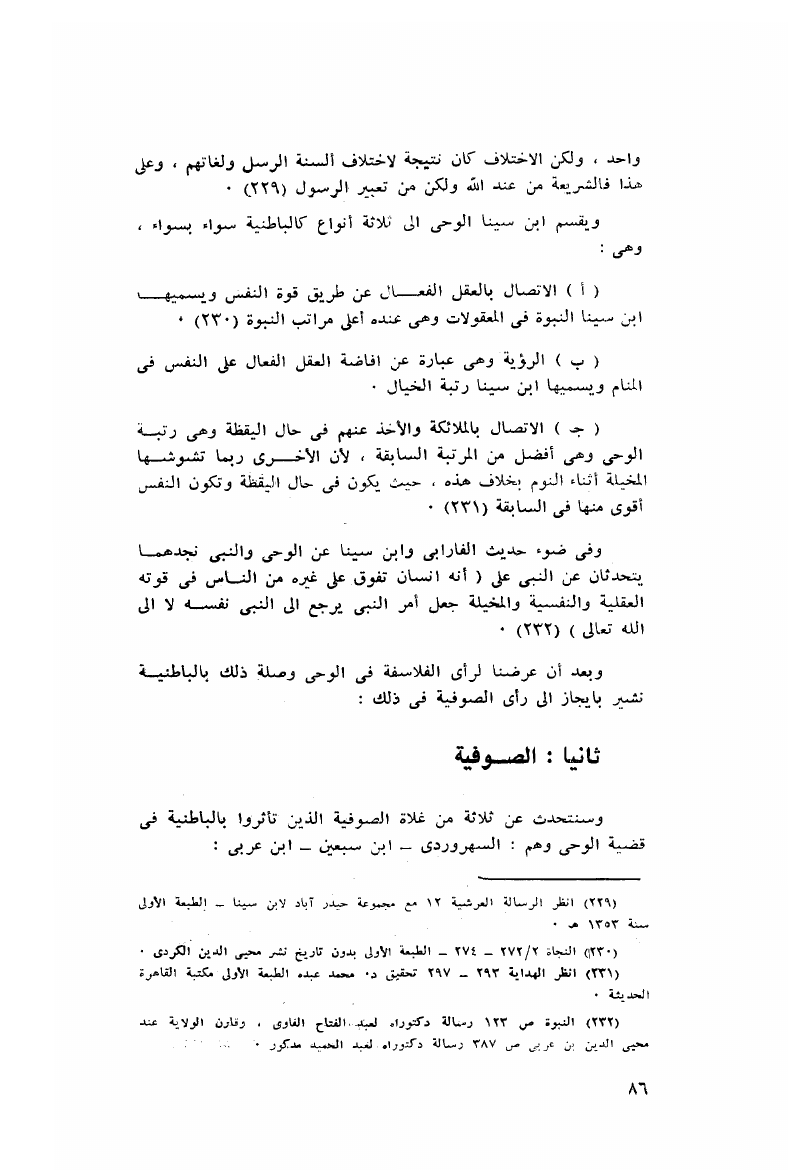 واحد ، ولكن الاختلاف كان نتيجة لاختلاف ألسنة الرسل ولغاتهم ، وعلى
هذا فالشريعة من عند الله ولكن من تعبير الرسول (٢٢٩) ٠
ويقسم ابن سينا الوحى الى ثلاثة أنواع كالباطنية سواء بسواء ،
وهى :
( أ ) الاتصال بالعقل الفعال عن طريق قوة النفس ويسميها
ابن سينا النبوة فى المعقولات وهى عنده أعلى مراتب النبوة (٢٣٠) ٠
( ب ) الرؤية وهى عبارة عن افاضة العقل الفعال على النفس فى
المنام ويسميها ابن سينا رتبة الخيال ٠
( ج ) الاتصال بالملائكة والأخذ عنهم فى حال اليقظة وهى رتبة
الوحى وهى أفضل من المرتبة السابقة ، لأن الأخرى ربما تشوشها
المخيلة أثناء النوم بخلاف هذه ، حيث يكون فى حال اليقظة وتكون النفس
أقوى منها فى السابقة (٢٣١) ٠
وفى ضوء حديث الفارابى وابن سينا عن الوحى والنبى نجدهما
يتحدثان عن النبى على ( أنه انسان تفوق على غيره من الناس فى قوته
العقلية والنفسية والمخيلة جعل أمر النبى يرجع الى النبى نفسه لا الى
الله تعالى ) (٢٣٢) ٠
وبعد أن عرضنا لرأى الفلاسفة فى الوحى وصلة ذلك بالباطنية
نشير بايجاز الى رأى الصوفية فى ذلك :
ثانيا : الصوفية
وسنتحدث عن ثلاثة من غلاة الصوفية الذين تأثروا بالباطنية فى
قضية الوحى وهم : السهروردى – ابن سبعين – ابن عربى :
(٢٢٩) انظر الرسالة العرشية ١٢ مع مجموعة حيدر آباد لابن سينا – الطبعة الأولى
سنة ١٣٥٣ هـ ٠
(٢٣٠) النجاة ٢٧٢/٢ – ٢٧٤ – الطبعة الأولى بدون تاريخ نشر محيى الدين الكردى ٠
(٢٣١) انظر الهداية ٢٩٣ – ٢٩٧ تحقيق د٠ محمد عبده الطبعة الأولى مكتبة القاهرة
الحديثة ٠
(٢٣٢) النبوة ص ١٢٣ رسالة دكتوراه لعبد الفتاح الفاوى ، وقارن الولاية عند
محيى الدين بن عربى ص ٣٨٧ رسالة دكتوراه لعبد الحميد مدكور ٠
٨٦